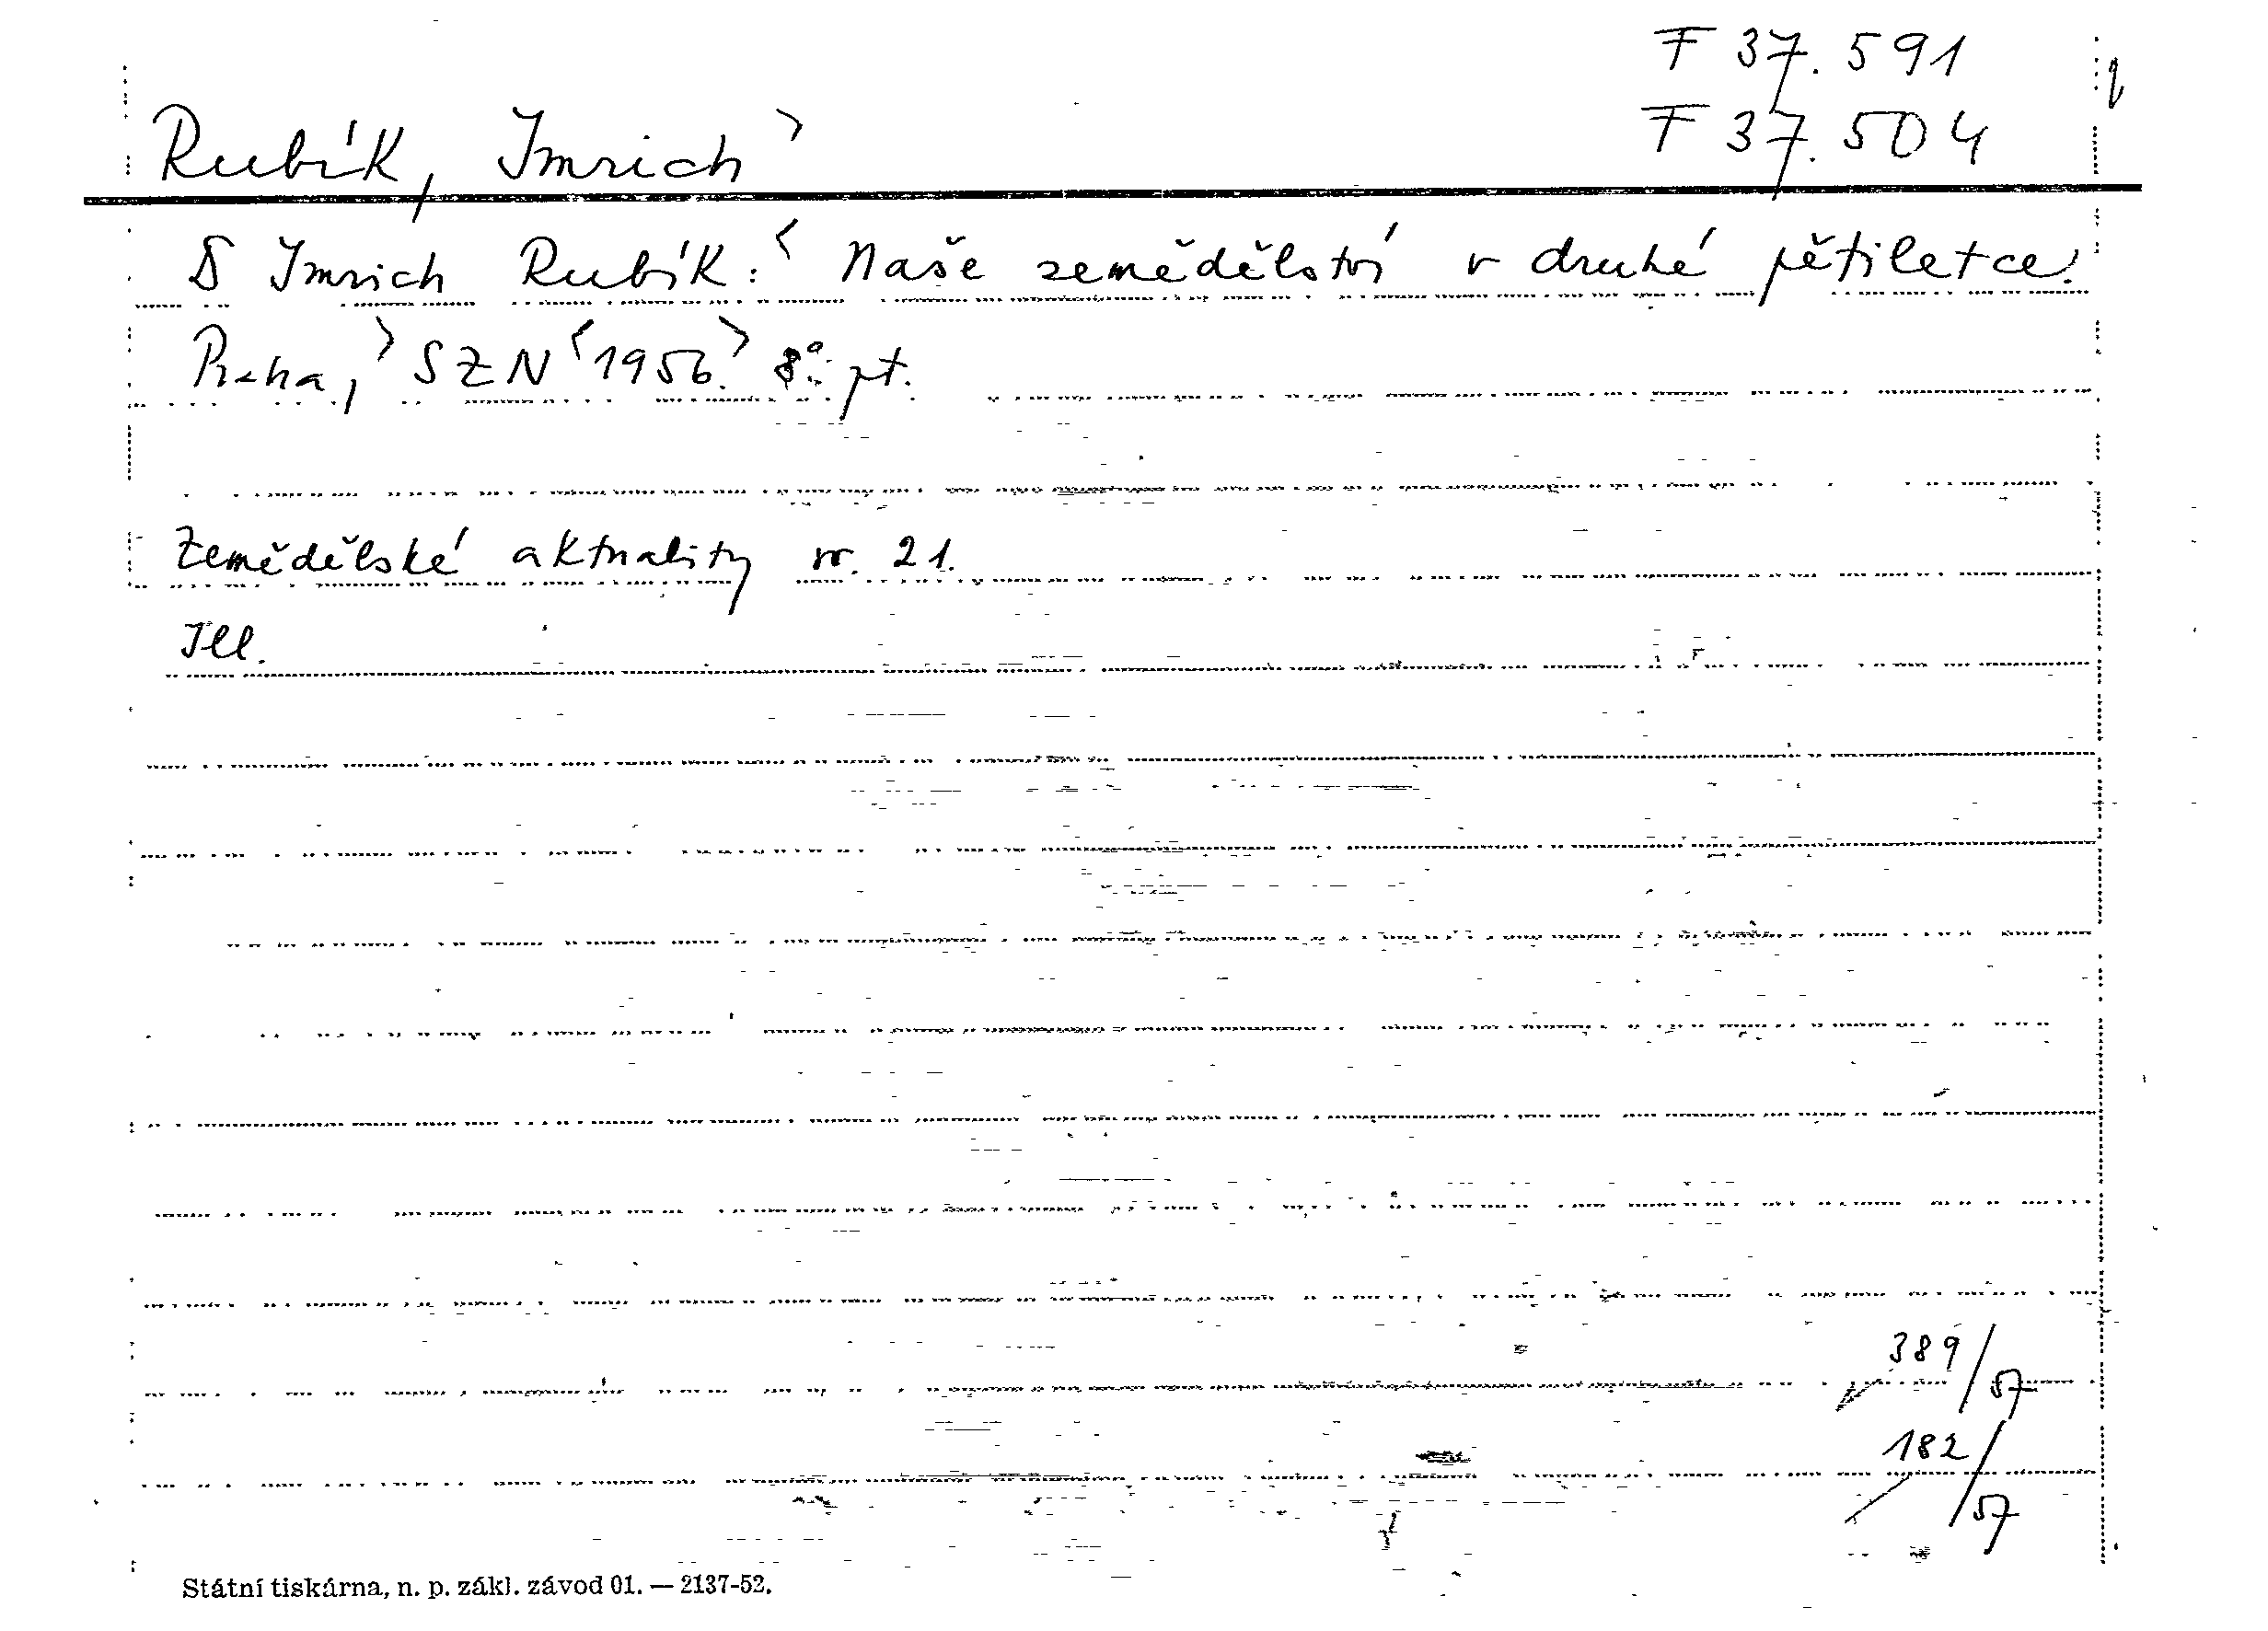 F 37.591
F 37.504
Rubík, Imrich >
Imrich Rubík: < Naše zemědělství v druhé pětiletce.
Praha, > SZN < 1956. > 8°. pt.
Zemědělské aktuality sv. 21.
Ill.
389/57
182/57
Státní tiskárna, n. p. zákl. závod 01. — 2137-52.